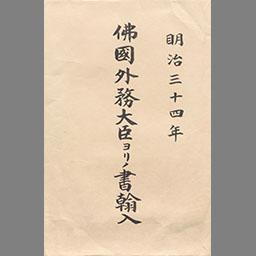 明治三十四年
佛國外務大臣ヨリノ書翰入